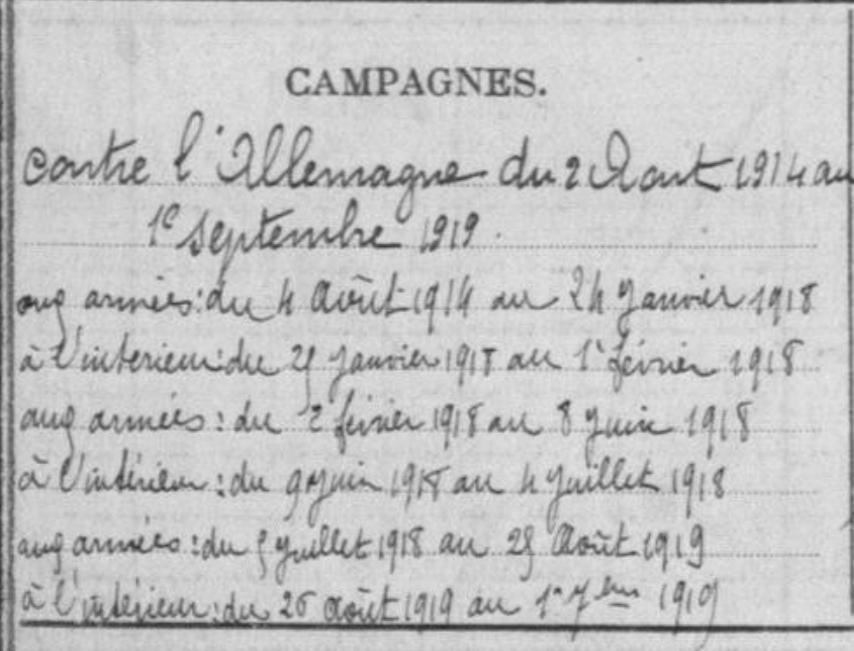 CAMPAGNES.
contre l'Allemagne du 2 Aout 1914 au
1e Septembre 1919.
aux armées: du 4 Août 1914 au 24 Janvier 1918
à l'interieur: du 25 Janvier 1918 au 1e février 1918
aux armées: du 2 février 1918 au 8 Juin 1918
à l'intérieur: du 9 Juin 1918 au 4 Juillet 1918
aux armées: du 5 Juillet 1918 au 25 Août 1919
à l'intérieur: du 26 août 1919 au 1er 7bre 1919